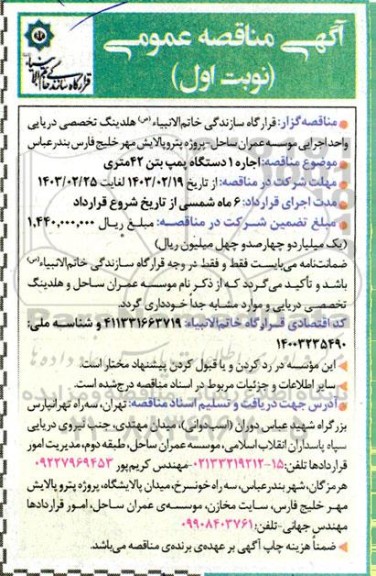 آگهی مناقصه عمومی
(نوبت اول)
قرارگاه سازندگی خاتم الانبیاء
مناقصه‌گزار: قرارگاه سازندگی خاتم‌الانبیاء (ص) هلدینگ تخصصی دریایی
واحد اجرایی موسسه عمران ساحل-پروژه پتروپالایش مهر خلیج فارس بندرعباس
موضوع مناقصه: اجاره ۱ دستگاه پمپ بتن ۴۲متری
مهلت شرکت در مناقصه: از تاریخ ۱۴۰۳/۰۲/۱۹ لغایت ۱۴۰۳/۰۲/۲۵
مدت اجرای قرارداد: ۶ ماه شمسی از تاریخ شروع قرارداد
مبلغ تضمین شرکت در مناقصه: مبلغ ریال ۱,۴۴۰,۰۰۰,۰۰۰
(یک میلیارد و چهارصد و چهل میلیون ریال)
ضمانت‌نامه می‌بایست فقط و فقط در وجه قرارگاه سازندگی خاتم‌الانبیاء (ص)
باشد و تأکید می‌گردد که از ذکر نام موسسه عمران ساحل و هلدینگ
تخصصی دریایی و موارد مشابه جداً خودداری گردد.
کد اقتصادی قرارگاه خاتم‌الانبیاء: ۴۱۱۳۳۱۶۶۳۷۱۹ و شناسه ملی:
۱۴۰۰۳۲۳۵۴۹۰
این مؤسسه در رد کردن و یا قبول کردن پیشنهاد مختار است.
سایر اطلاعات و جزئیات مربوط در اسناد مناقصه درج شده است.
آدرس جهت دریافت و تسلیم اسناد مناقصه: تهران، سه‌راه تهرانپارس
بزرگراه شهید عباس دوران (اسب‌دوانی)، میدان مهتدی، جنب نیروی دریایی
سپاه پاسداران انقلاب اسلامی، موسسه عمران ساحل، طبقه دوم، مدیریت امور
قراردادها تلفن: ۱۵-۰۲۱۳۳۲۱۹۲۱۲-مهندس کریم‌پور ۰۹۲۲۷۹۶۹۴۵۳
هرمزگان، شهر بندرعباس، سه راه خونسرخ، میدان پالایشگاه، پروژه پتروپالایش
مهر خلیج فارس، سایت مخازن، موسسه‌ی عمران ساحل، امور قراردادها
مهندس جهانی-تلفن: ۰۹۹۰۸۴۰۳۷۶۱
ضمناً هزینه چاپ آگهی بر عهده‌ی برنده‌ی مناقصه می‌باشد.